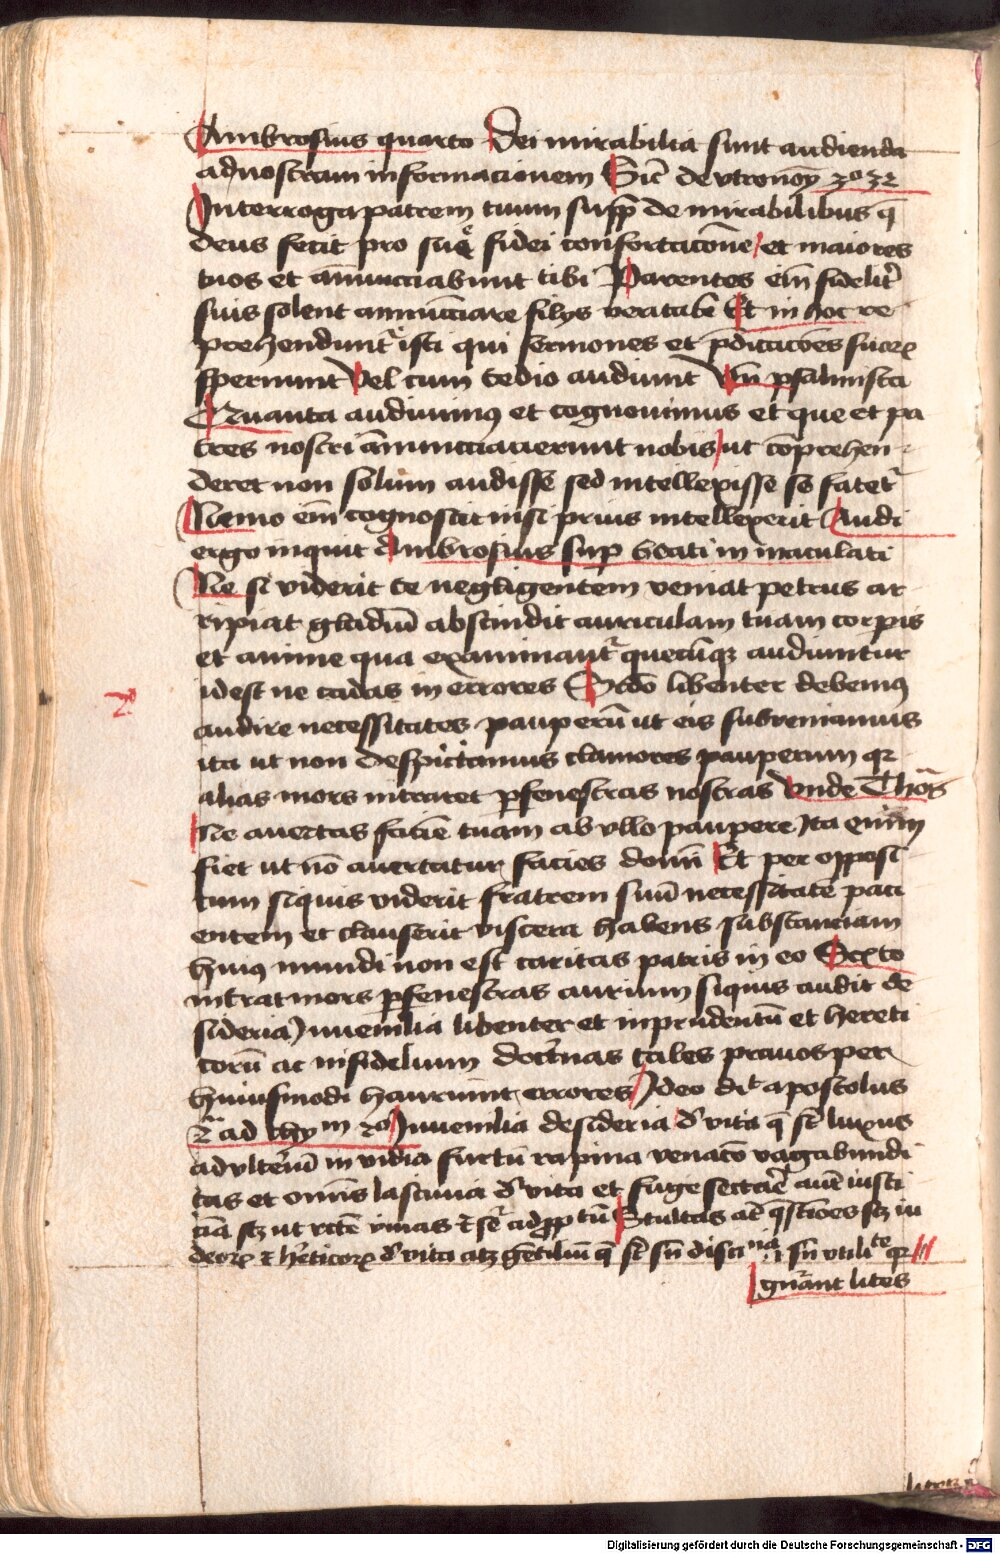 Ambrosius quarto Dei mirabilia sunt audienda
ad nostram informacionem Sic̄ deutronōy 3º 32
Interroga patrem tuum supp̄ de mirabilibus q̄
deus fecit pro sue fidei confortacōne et maiores
tuos et añuncciabunt tibi Parentes eīm fideliť
suis solent annūcciare filys veritatē Et in hoc re
prehendunť isti qui sermones et p̄dicacōes sacr̄
spernunt Vel cum tedio audiunt Vn̄ psalmista
Quanta audiuimꝰ et cognouimus et que et pa
tres nostri añuncciauerunt nobis ut cōprehen
deret non solum audisse sed intellexisse se fateť
Nemo eīm cognoscit nisi prius intellexerit Audi
ergo inquit Ambrosius sup̄ beati in maculati
Ne si viderit te negligentem veniat petrus ar
ripiat gladiū abscindit auriculam tuam corpis
et anime qua examinanť quecūqꝫ audiuntur
id est ne cadas in errores Scdō libenter debemꝰ
2º
audire necessitates pauperū ut eis subueniamus
ita ut non despiciamus clamores pauperum qꝛ
alias mors intraret ꝑ fenestras nostras Vnde Thob̄
Ne auertas faciē tuam ab vllo paupere Ita enim
fiet ut nō auertatur facies domī Et per opposi
tum siquis viderit fratrem suū necessitatē paci
entem et clauserit viscera habens substanciam
huiꝰ mundi non est caritas patris in eo Sexto
intrat mors ꝑ fenestras aurium siquis audit de
sideria Iuuenilia libenter et inprudentū et hereti
corū ac infidelium doctrinas tales prauos per
huiusmodi hauriunt errores Ideo dit apostolus
2ª ad thym 2º Iuuenilia desideria d̓ vita q̄ sт̄ luxus
adulteriū inuidia furtū rapina venacō vagabundi
tas et omīs lasciuia d̓ vita et fuge sectaře aut̄ iusti
ciā scꝫ ut rctē viuas Stultas at̄ q̄stiōes scꝫ iu
deoꝝ ⁊ hēticoꝝ d̓ vita atqꝫ gētiliū q̄ sт̄ sn̄ disciⁿᵃ ⁊ sn̄ utiliᵗᵉ qꝛ
gn̄ant lites
Digitalisierung gefördert durch die Deutsche Forschungsgemeinschaft - DFG